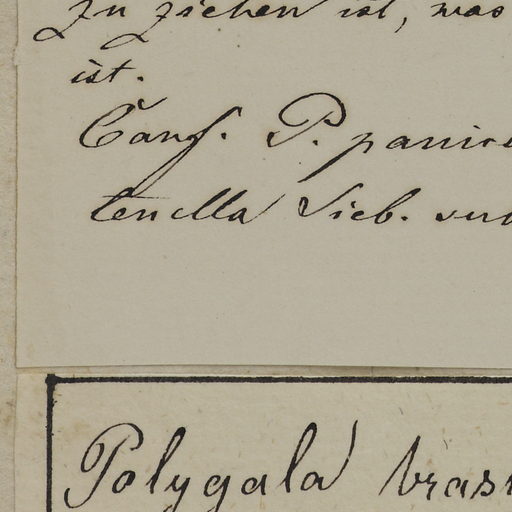 zu ziehen ist, was
ist.
Conf. P. panic
tenella Sieb. und
Polygala bras